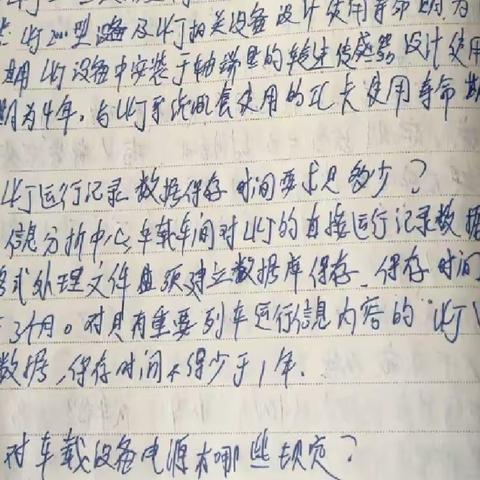 LKJ2000型设备及LKJ相关设备设计使用寿命期为
LKJ设备中安装于轴端里的转速传感器设计使用
期为4年。与LKJ系统配套使用的IC卡使用寿命期
LKJ运行记录数据保存时间要求是多少？
信息分析中心、车载车间对LKJ的直接运行记录数据
格式处理文件且须建立数据库保存，保存时间
3个月。对具有重要列车运行信息内容的LKJ
数据，保存时间不得少于1年.
对车载设备电源有哪些规定？